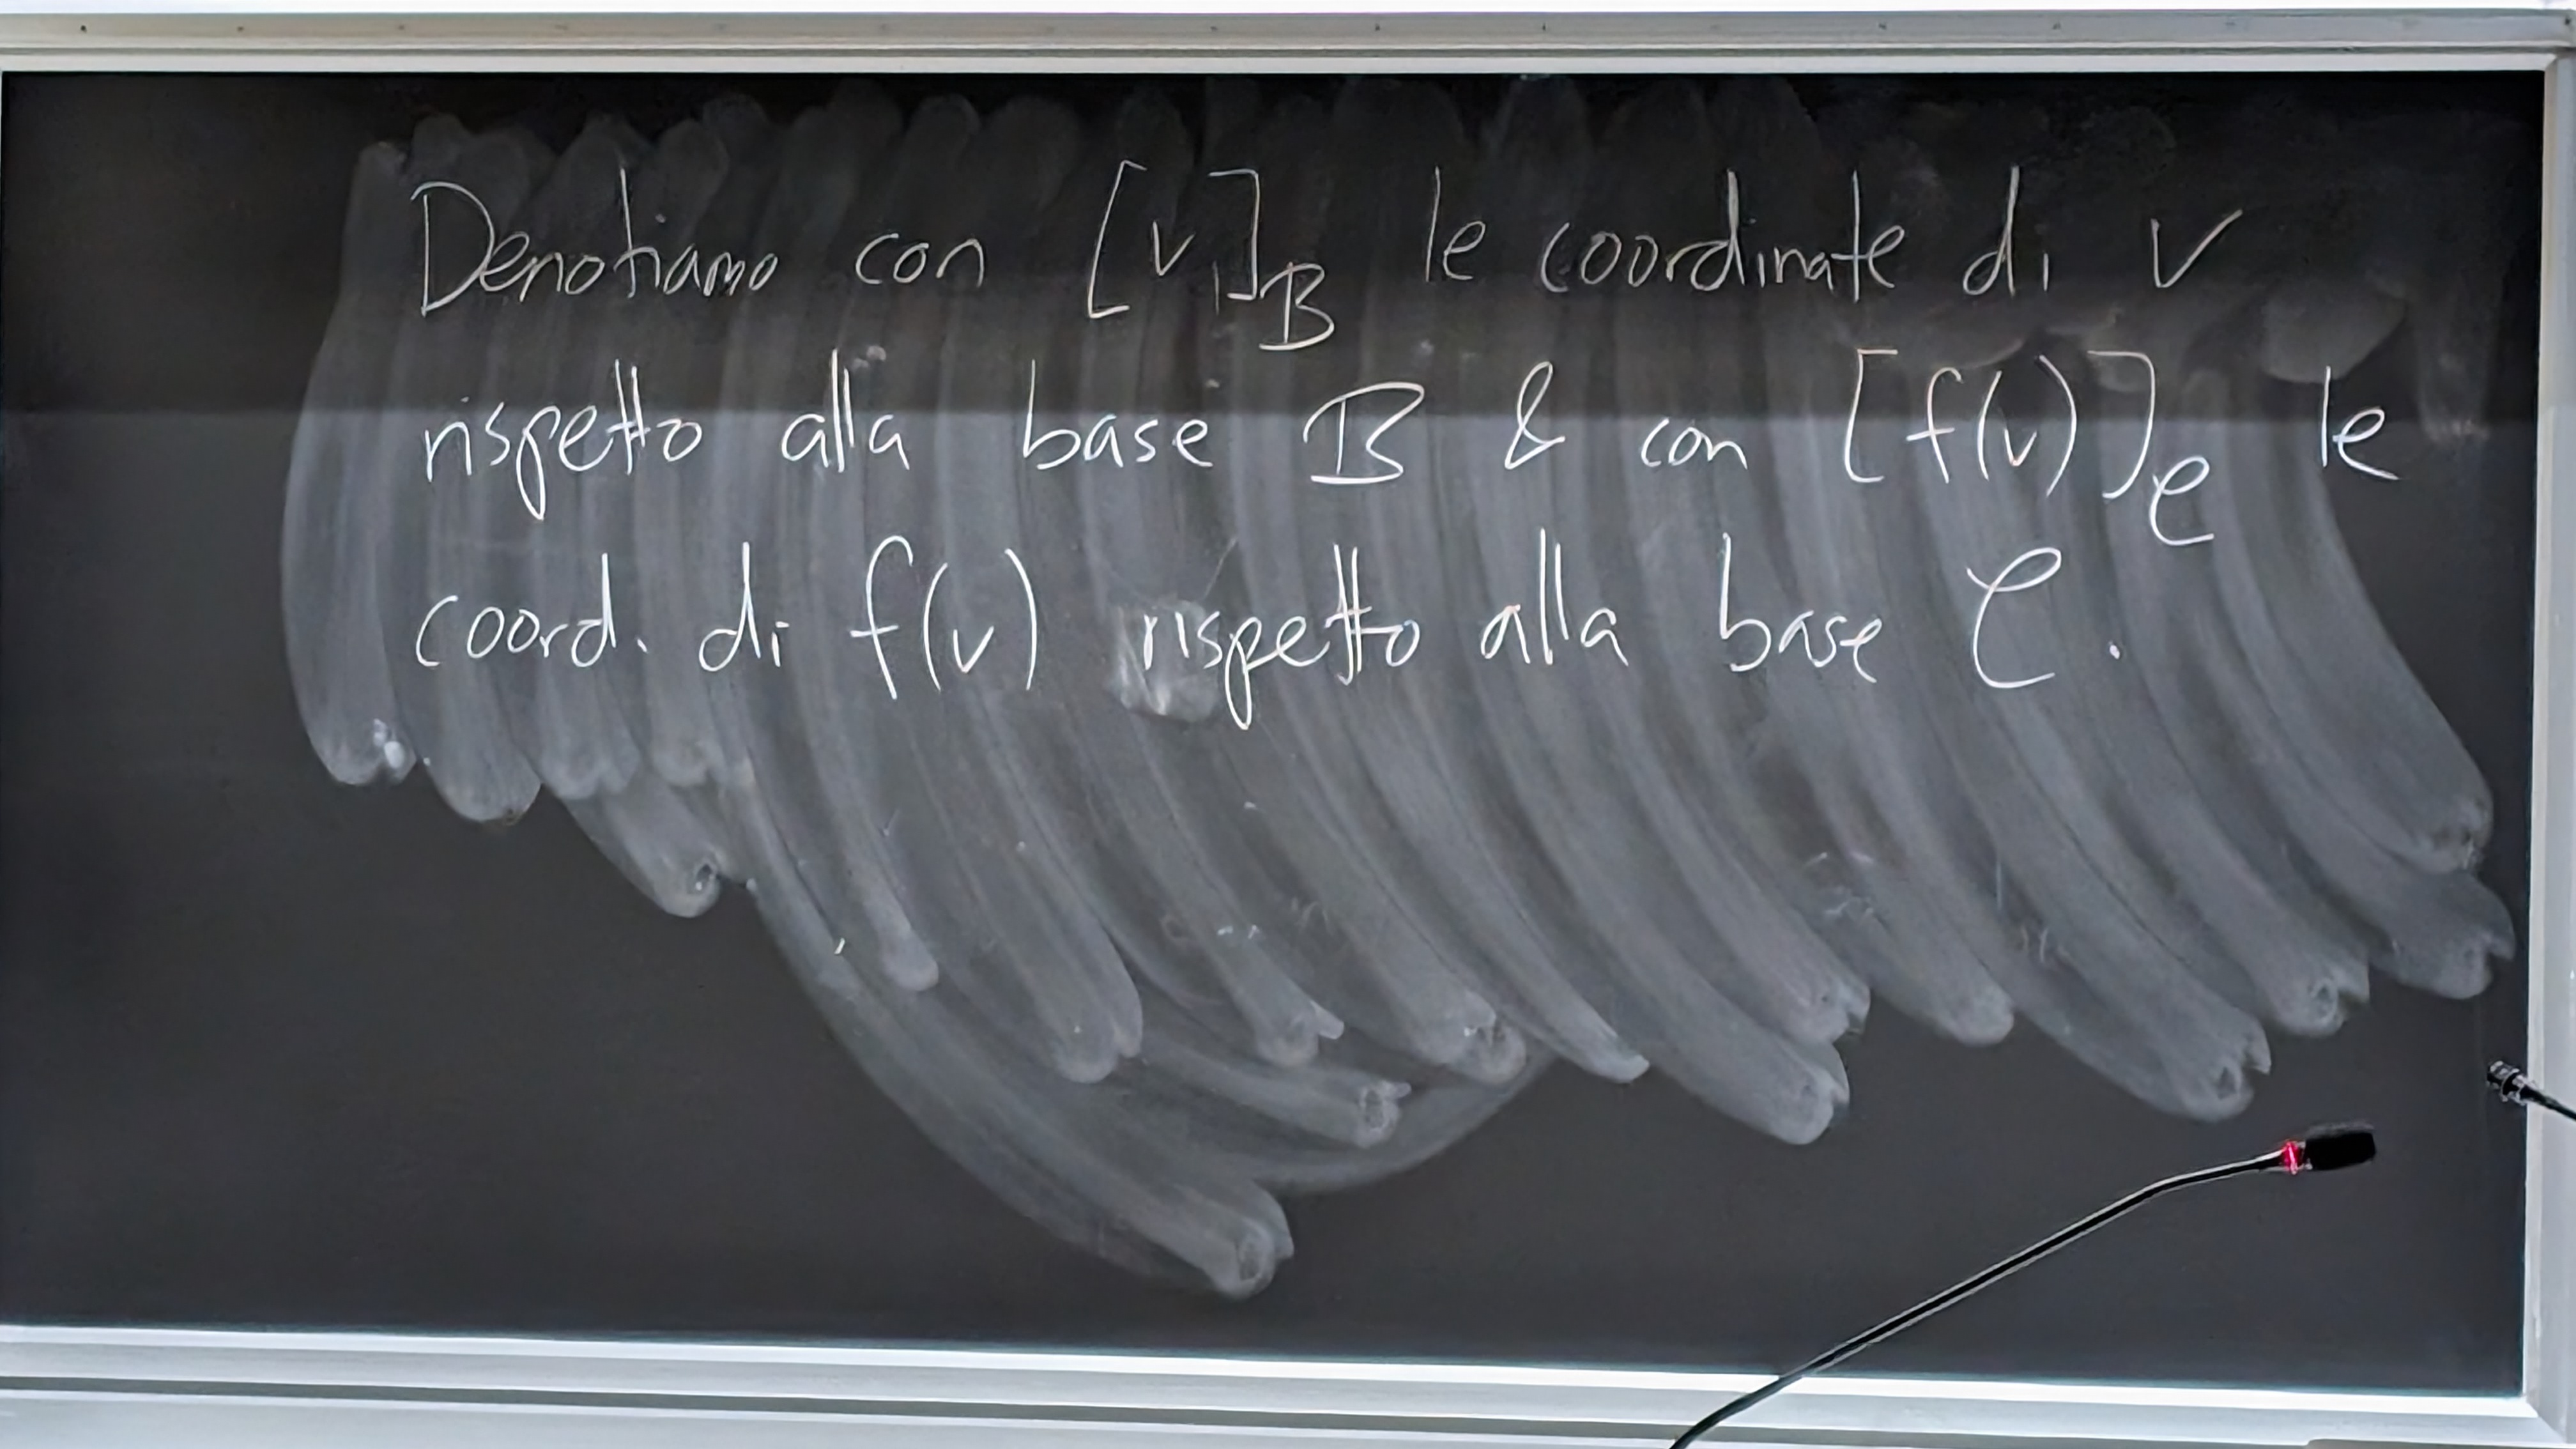 Denotiamo con [v]_B le coordinate di v
rispetto alla base B & con [f(v)]_C le
coord. di f(v) rispetto alla base C.